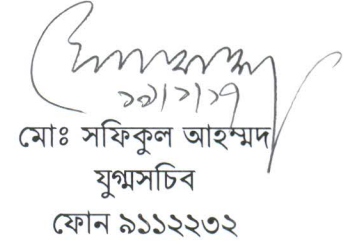 ১৯/১/১৭
মোঃ সফিকুল আহম্মদ
যুগ্মসচিব
ফোন ৯১১২২৩২